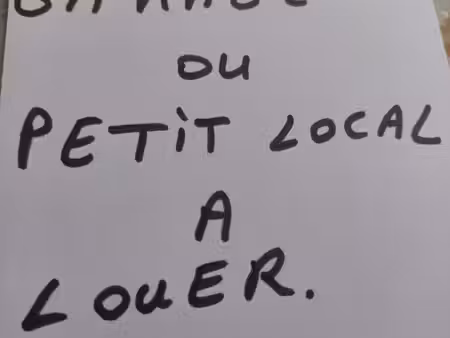 OU
PETiT LOCAL
A
LOUER.